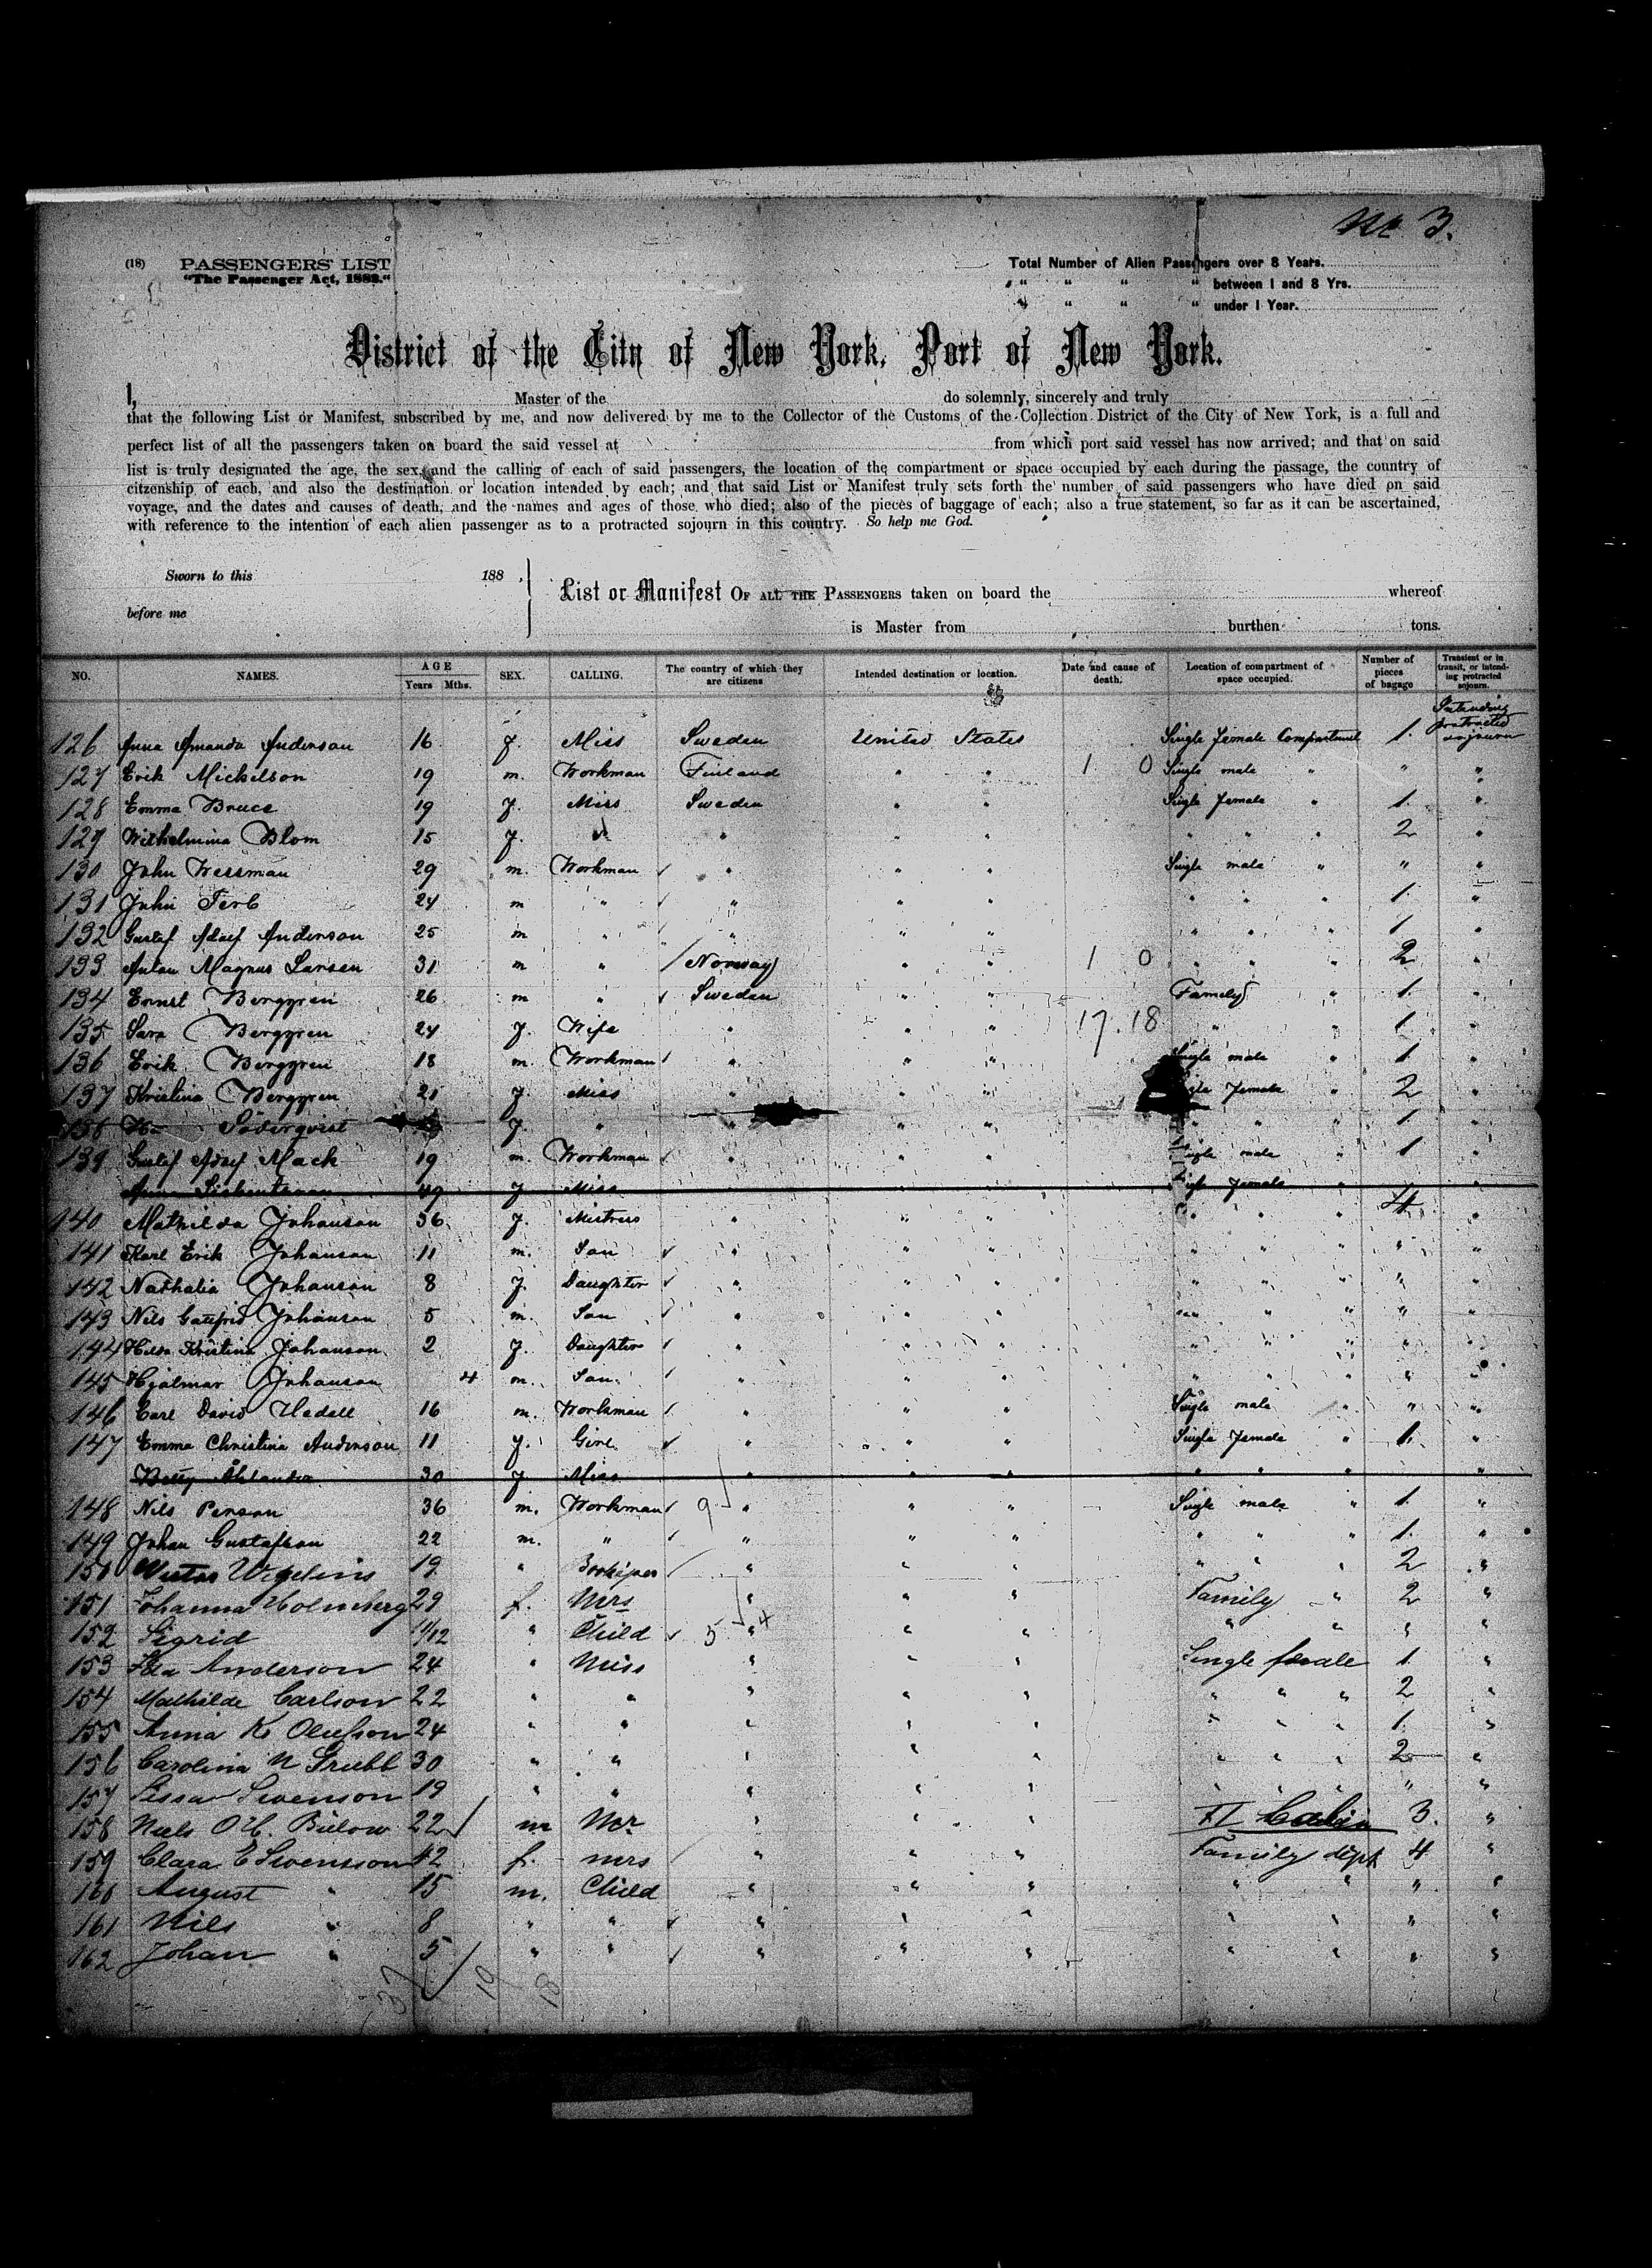 No 3.
(18) PASSENGERS' LIST
"The Passenger Act, 1882."
Total Number of Alien Passengers over 8 Years.
" " " " between 1 and 8 Yrs.
" " " " under 1 Year.
District of the City of New York, Port of New York.
I, Master of the do solemnly, sincerely and truly
that the following List or Manifest, subscribed by me, and now delivered by me to the Collector of the Customs of the Collection District of the City of New York, is a full and
perfect list of all the passengers taken on board the said vessel at from which port said vessel has now arrived; and that on said
list is truly designated the age, the sex, and the calling of each of said passengers, the location of the compartment or space occupied by each during the passage, the country of
citzenship of each, and also the destination or location intended by each; and that said List or Manifest truly sets forth the number of said passengers who have died on said
voyage, and the dates and causes of death, and the names and ages of those who died; also of the pieces of baggage of each; also a true statement, so far as it can be ascertained,
with reference to the intention of each alien passenger as to a protracted sojourn in this country. So help me God.
Sworn to this 188 ,
before me
List or Manifest OF ALL THE PASSENGERS taken on board the whereof
is Master from burthen tons.
NO. NAMES. AGE Years Mths. SEX. CALLING. The country of which they are citizens Intended destination or location. Date and cause of death. Location of compartment of space occupied. Number of pieces of bagage Transient or in transit, or intending protracted sojourn.
126 Anna Amanda Anderson 16 f. Miss Sweden United States Single female Compartment 1. Intending protracted sojourn
127 Erik Mickelson 19 m. Workman Finland " " 1 0 Single male " " "
128 Emma Bruce 19 f. Miss Sweden " " Single female " 1. "
129 Wilhelmina Blom 15 f. " " " " " " " 2 "
130 John Wessman 29 m. Workman " " " Single male " " "
131 John 24 m " " " " " " " 1. "
132 Gustaf Adolf Anderson 25 m " " " " " " " 1 "
133 Anton Magnus Larsen 31 m " Norway " " 1 0 " " " 2 "
134 Ernst Berggren 26 m " Sweden " " Family " 1. "
135 Sara Berggren 24 f. Wife " " " 17.18 " " 1. "
136 Erik Berggren 18 m. Workman " " " Single male " 1. "
137 Kristina Berggren 21 f. Miss " " " female " 2 "
138 Söderqvist f " " " " " " " 1. "
139 Gustaf Adolf Mack 19 m. Workman " " " Single male " 1 "
Anna 49 f Miss female " "
140 Mathilda Johanson 36 f. Mistress " " " " " " 4 "
141 Karl Erik Johanson 11 m. Son " " " " " " " "
142 Nathalia Johanson 8 f. Daughter " " " " " " " "
143 Nils Gottfrid Johanson 5 m. Son " " " " " " " "
144 Hilda Kristina Johanson 2 f. Daughter " " " " " " " "
145 Hjalmar Johanson 4 m. Son " " " " " " " "
146 Carl David Hedell 16 m. Workman " " " Single male " " "
147 Emma Christina Anderson 11 f. Girl " " " Single female " 1. "
Betty 30 f Miss " " " " " " "
148 Nils Person 36 m. Workman 9 " " " Single male " 1. "
149 Johan Gustafson 22 m. " " " " " " " 1. "
150 19 " " " " " " " 2 "
151 Johanna Holmberg 29 f. Mrs " " " Family " 2 "
152 Sigrid 11/12 " Child 5 4 " " " " " " "
153 Ida Anderson 24 " Miss " " " Single female 1. "
154 Mathilde Carlson 22 " " " " " " " " 2 "
155 Anna K Olufson 24 " " " " " " " " 1. "
156 Carolina N Grubb 30 " " " " " " " " 2 "
157 Swenson 19 " " " " " " " " " "
158 Niels O H. Bülow 22 m Mr " " " II Cabin 3. "
159 Clara E Swensson 42 f. mrs " " " Family dept 4 "
160 August " 15 m. Child " " " " " " "
161 Nils " 8 " " " " " " " " "
162 Johan " 5 " " " " " " " " "
37 19 18